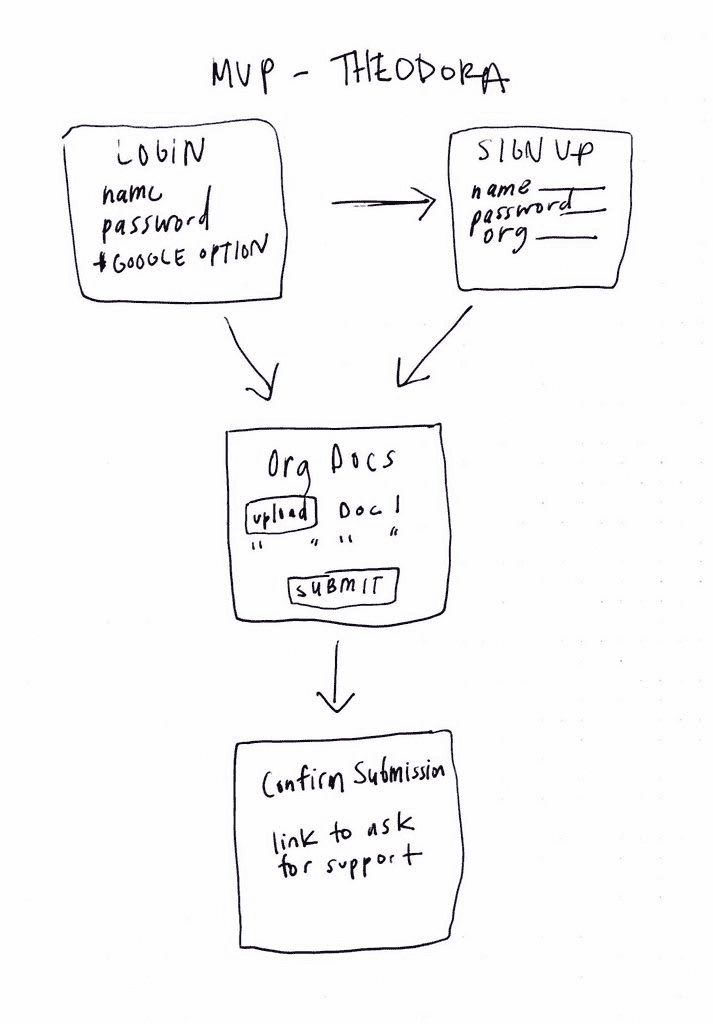 MVP - THEODORA
LOGIN
name
password
+GOOGLE OPTION
SIGN UP
name
password
org
Org Docs
upload Doc 1
" " " "
SUBMIT
Confirm Submission
link to ask
for support